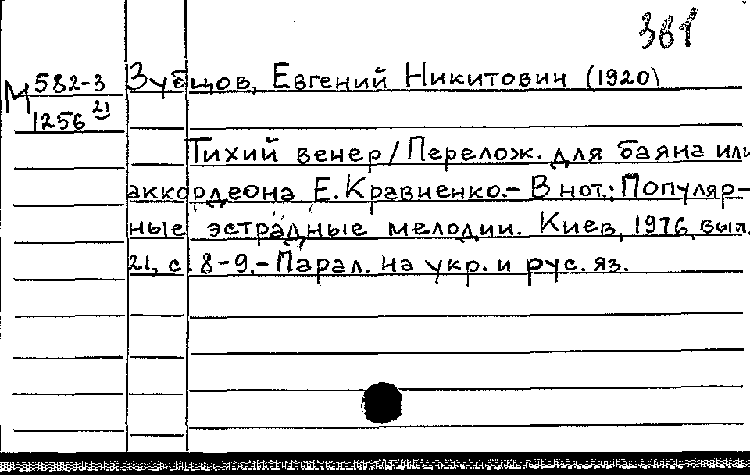 361
М 582-3 Зубцов, Евгений Никитович (1920)
1256 21
Тихий вечер / Перелож. для баяна или
аккордеона Е. Кравченко. - В нот.: Популяр-
ные эстрадные мелодии. Киев, 1976, вып.
21, с. 8-9. - Парал. на укр. и рус. яз.